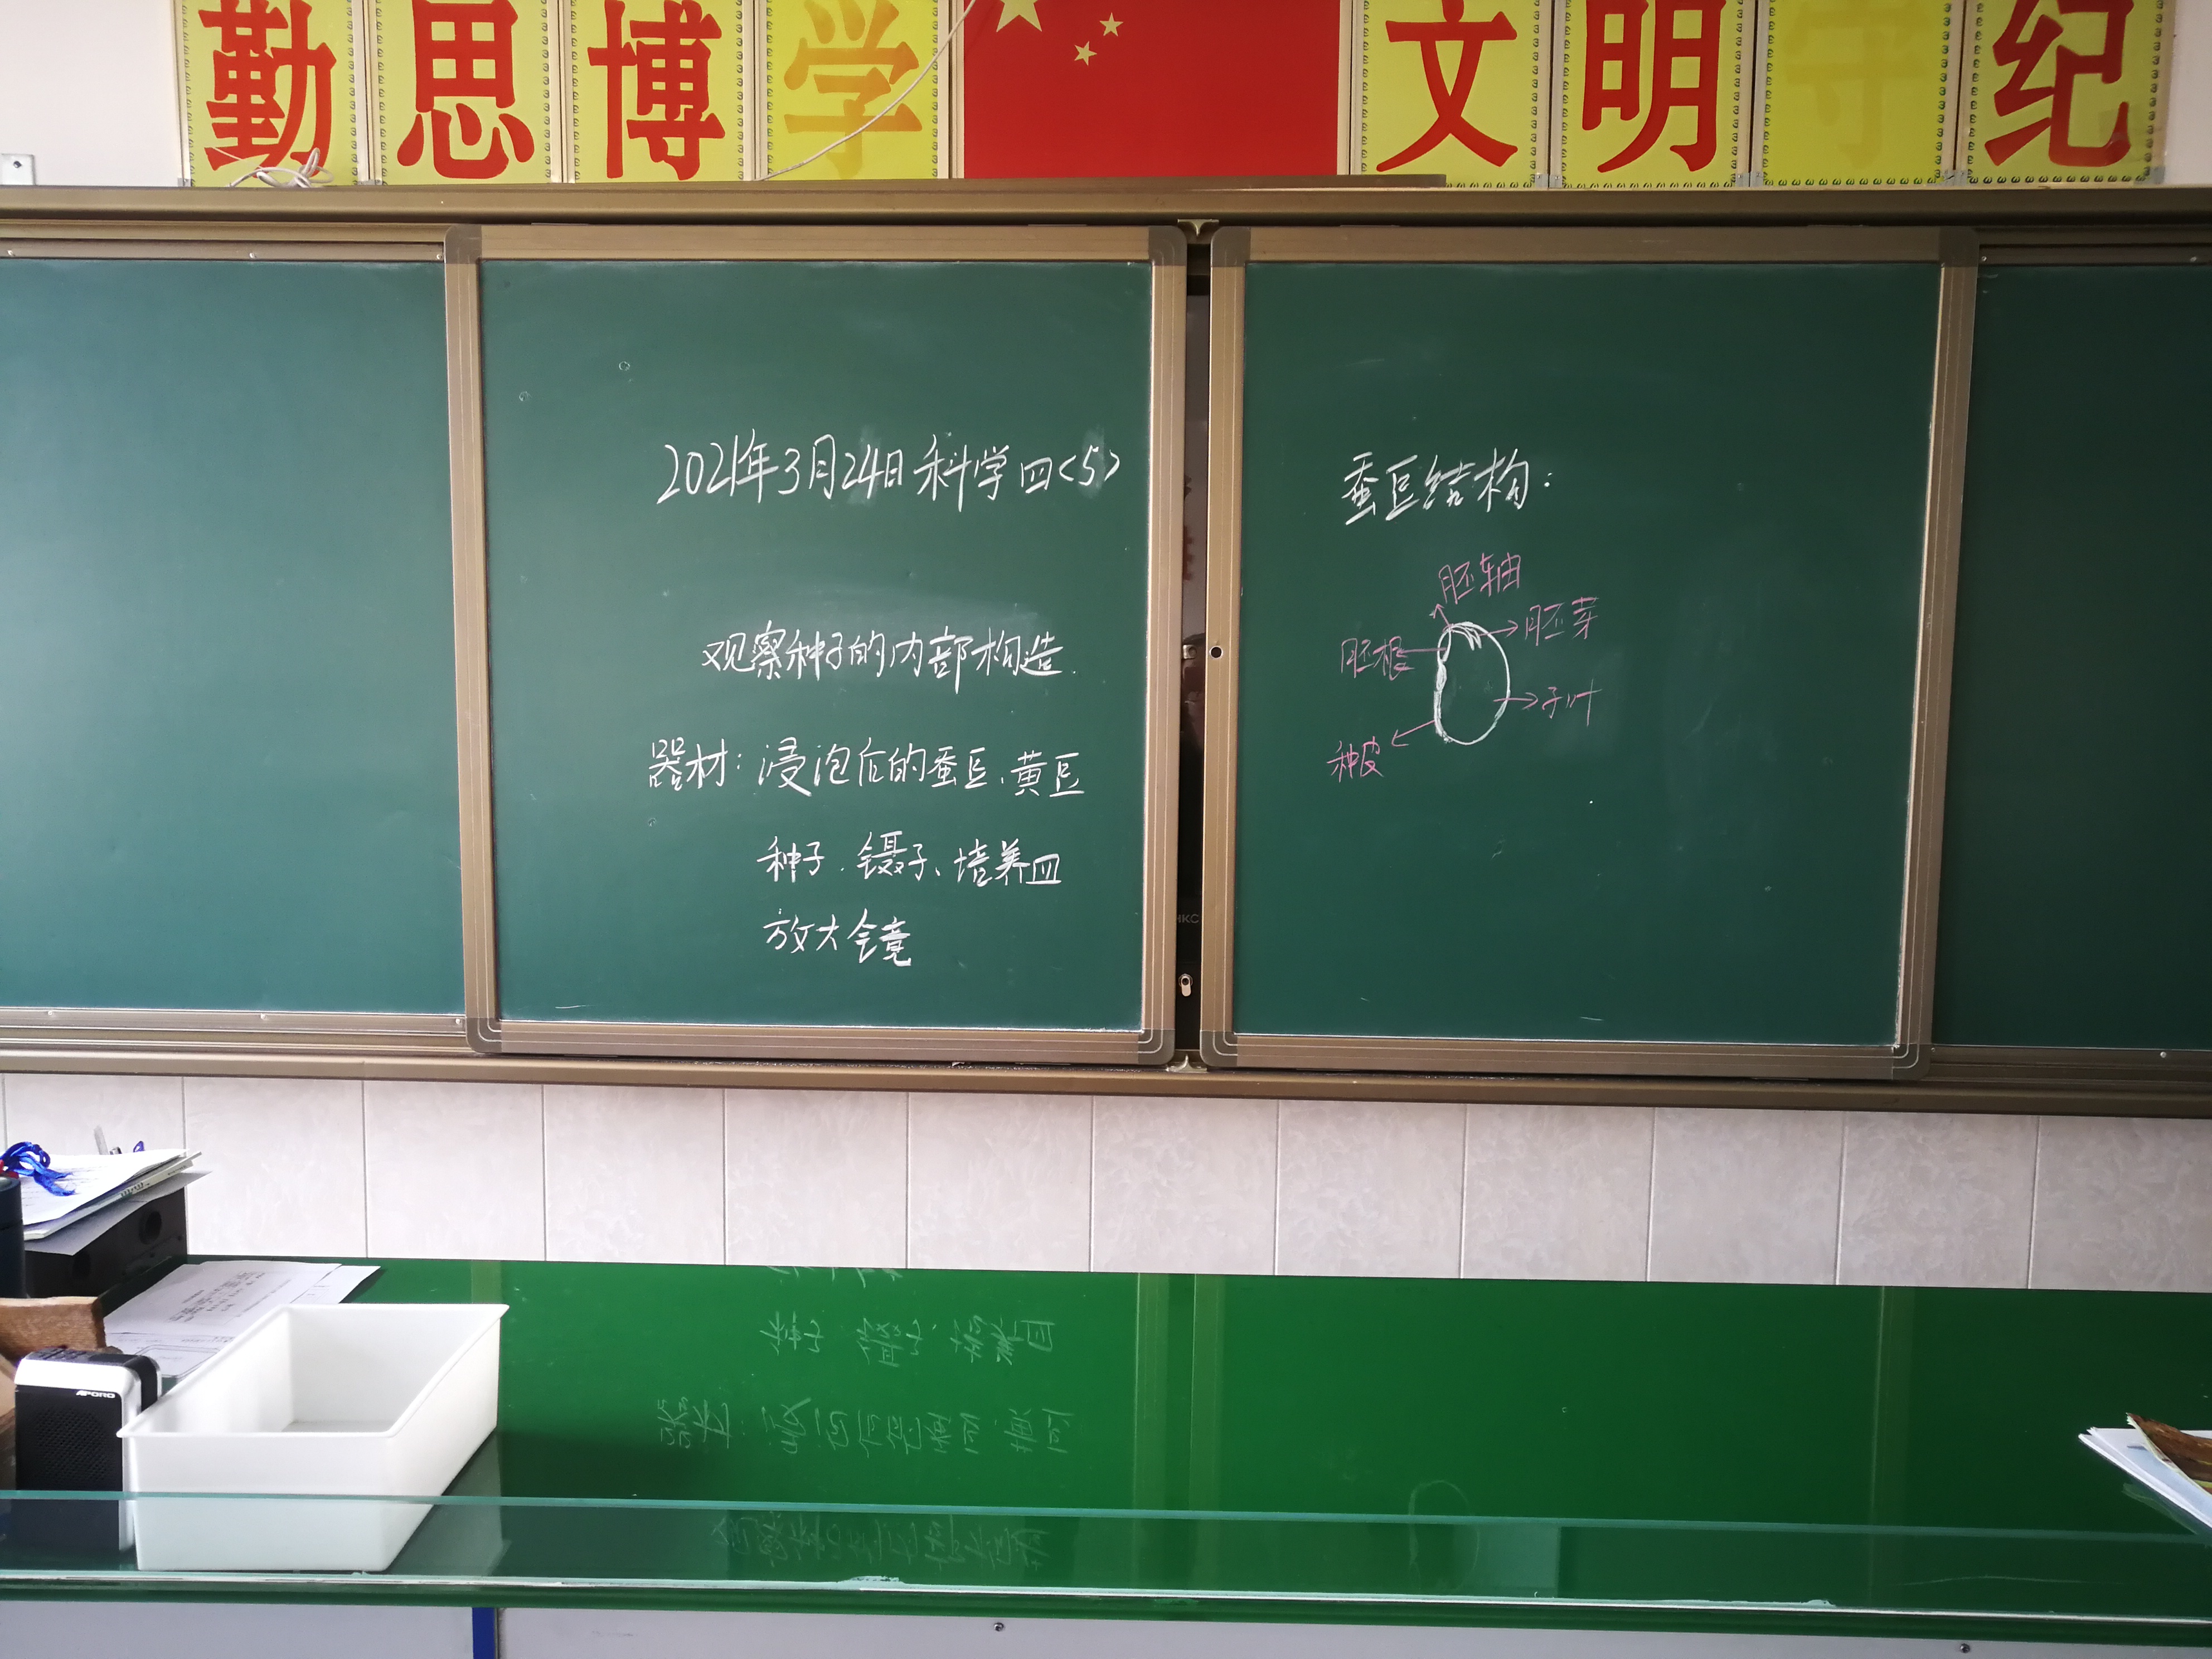 勤思博学 文明守纪
2021年3月24日科学四<5>
观察种子的内部构造.
器材：浸泡后的蚕豆、黄豆
种子、镊子、培养皿
放大镜
蚕豆结构：
胚轴
胚芽
胚根
子叶
种皮
HKC